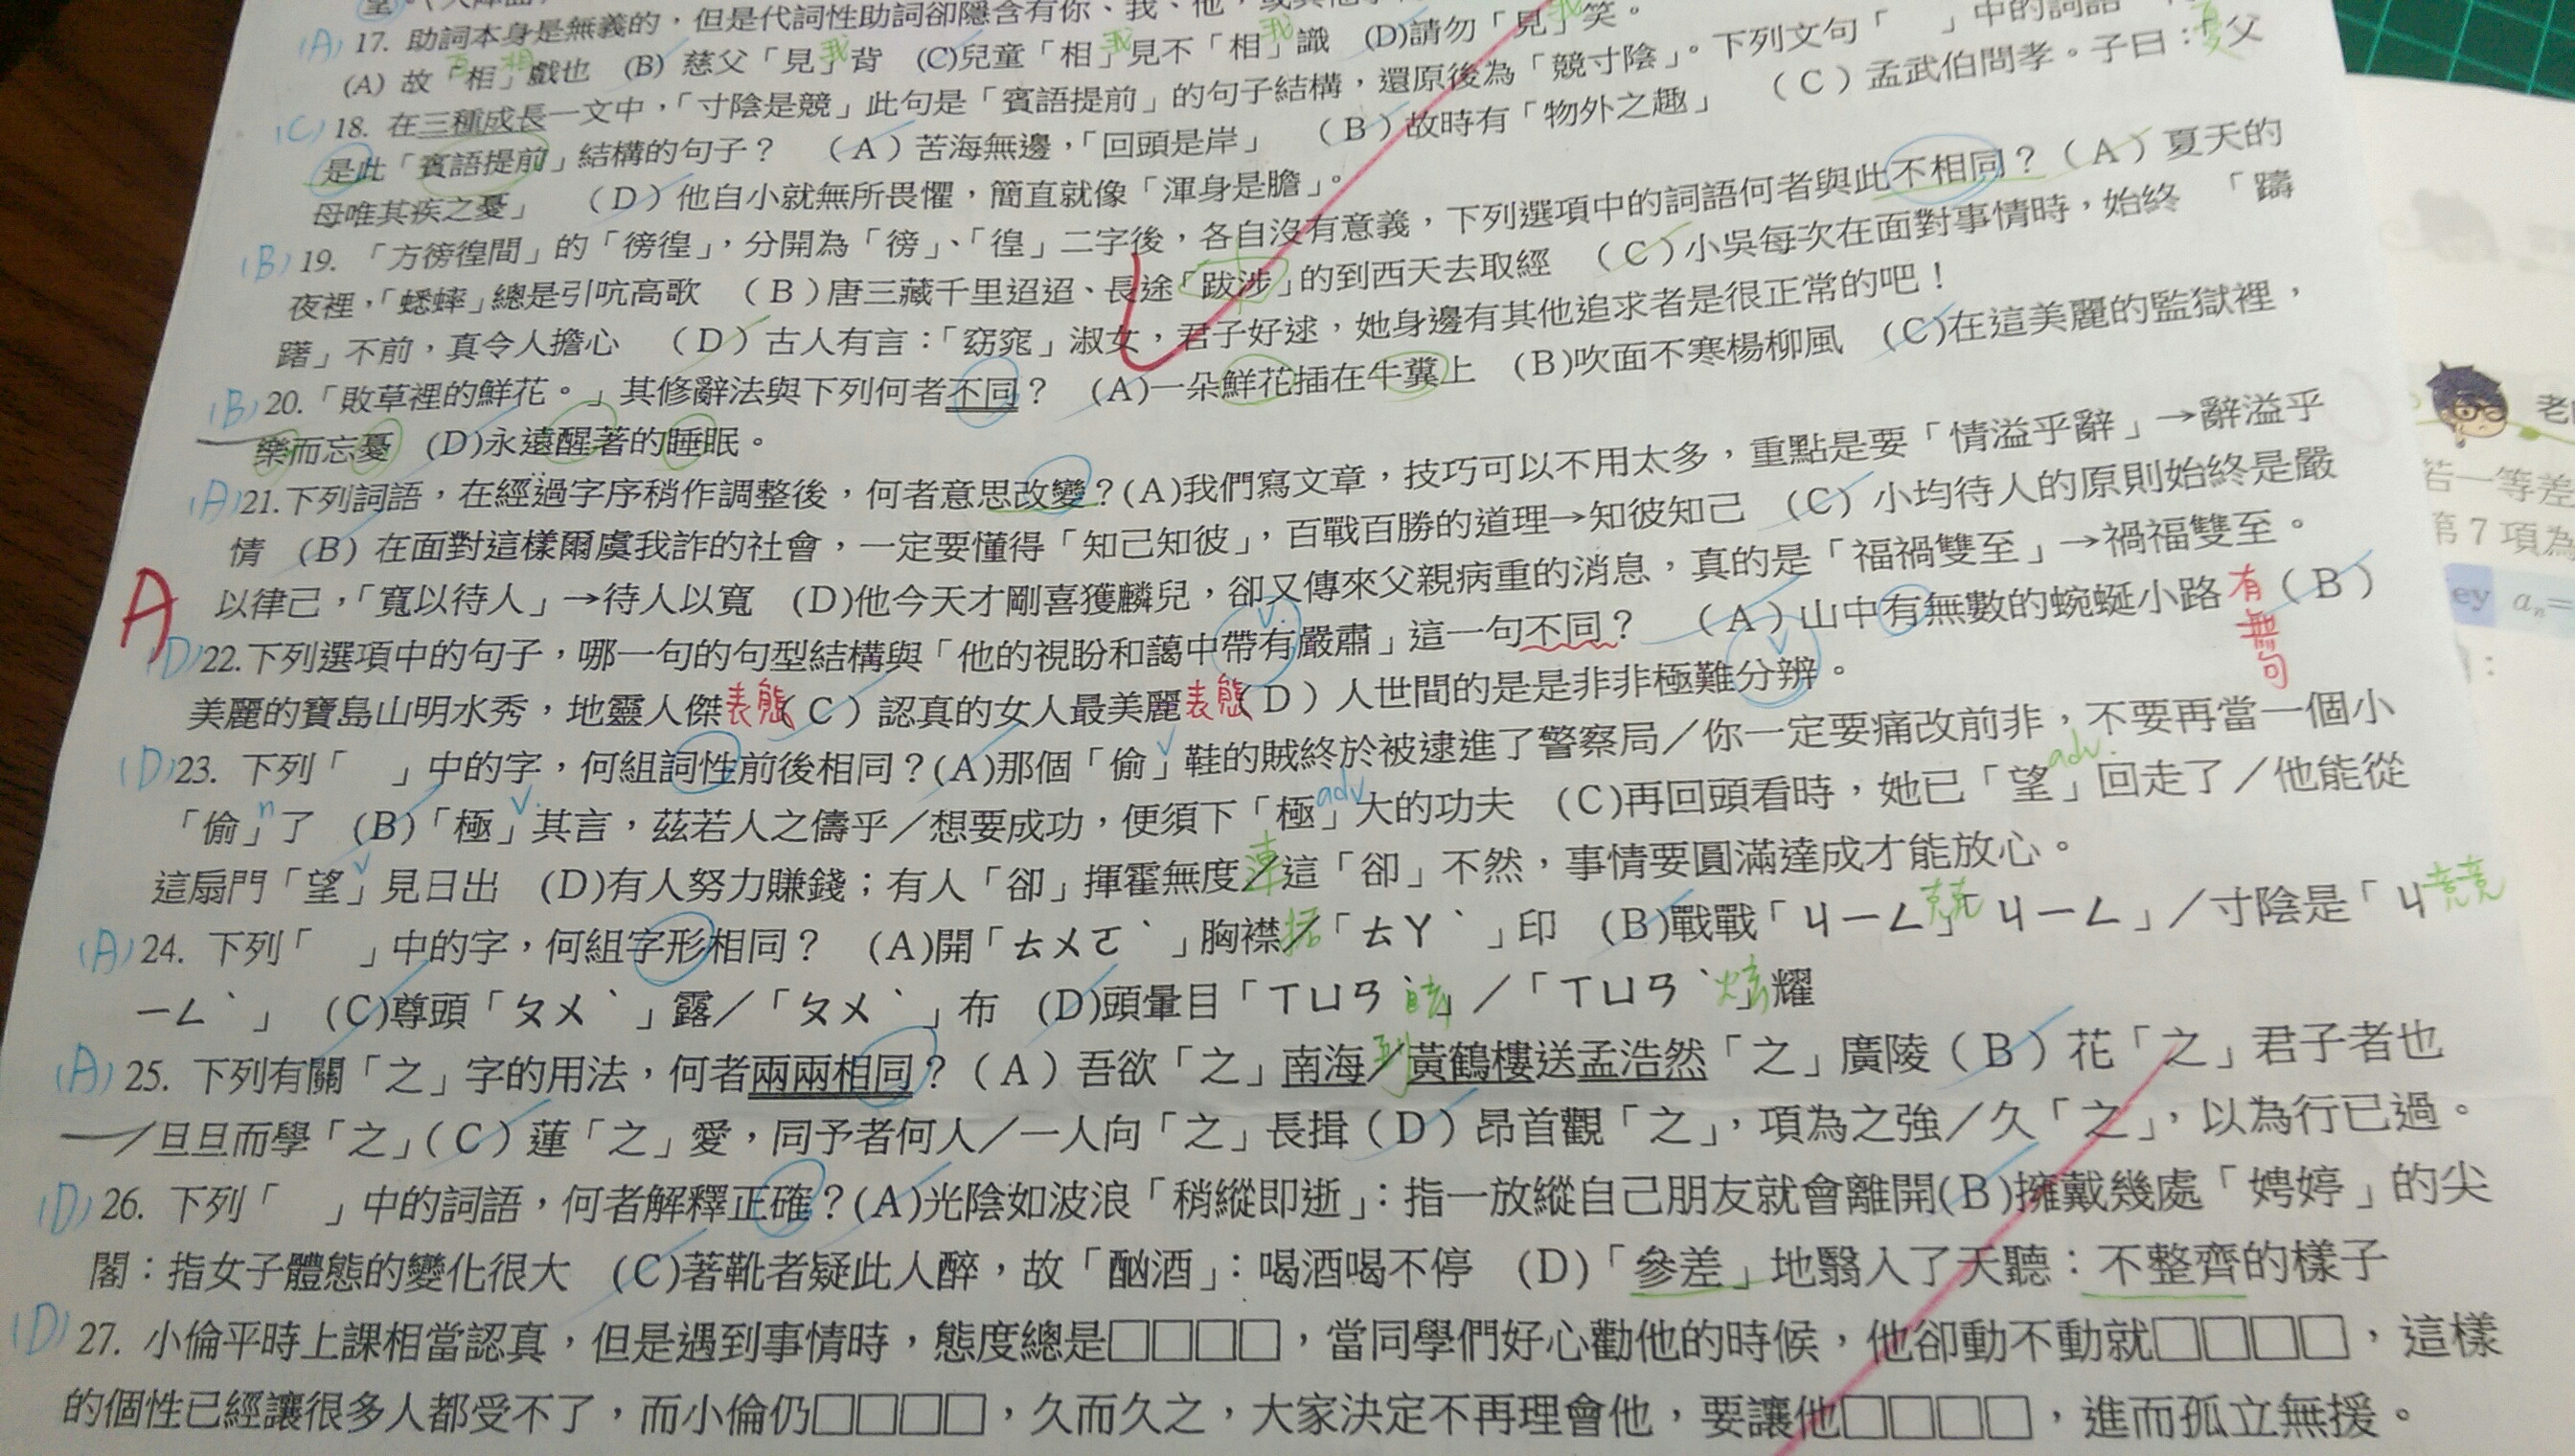 助詞本身是無義的，但是代詞性助詞卻隱含有你、我、他，
(A) 17. 助詞本身是無義的，但是代詞性助詞卻隱含有你、我、他，或
(A) 故「相」戲也 (B) 慈父「見」背 (C)兒童「相」見不「相」識 (D)請勿「見」笑。
(C) 18. 在三種成長一文中，「寸陰是競」此句是「賓語提前」的句子結構，還原後為「競寸陰」。下列文句「 」中的詞語
是此「賓語提前」結構的句子？ (A) 苦海無邊，「回頭是岸」 (B) 故時有「物外之趣」 (C) 孟武伯問孝。子曰：「父
母唯其疾之憂」 (D) 他自小就無所畏懼，簡直就像「渾身是膽」。
(B) 19. 「方徬徨間」的「徬徨」，分開為「徬」、「徨」二字後，各自沒有意義，下列選項中的詞語何者與此不相同？ (A) 夏天的
夜裡，「蟋蟀」總是引吭高歌 (B) 唐三藏千里迢迢、長途「跋涉」的到西天去取經 (C) 小吳每次在面對事情時，始終 「躊
躇」不前，真令人擔心 (D) 古人有言：「窈窕」淑女，君子好逑，她身邊有其他追求者是很正常的吧！
(B) 20.「敗草裡的鮮花。」其修辭法與下列何者不同？ (A)一朵鮮花插在牛糞上 (B)吹面不寒楊柳風 (C)在這美麗的監獄裡，
樂而忘憂 (D)永遠醒著的睡眠。
(A) 21.下列詞語，在經過字序稍作調整後，何者意思改變？(A)我們寫文章，技巧可以不用太多，重點是要「情溢乎辭」→辭溢乎
情 (B) 在面對這樣爾虞我詐的社會，一定要懂得「知己知彼」，百戰百勝的道理→知彼知己 (C) 小均待人的原則始終是嚴
以律己，「寬以待人」→待人以寬 (D)他今天才剛喜獲麟兒，卻又傳來父親病重的消息，真的是「福禍雙至」→禍福雙至。
A (D) 22.下列選項中的句子，哪一句的句型結構與「他的視盼和藹中帶有嚴肅」這一句不同？ (A) 山中有無數的蜿蜒小路 有無句 (B)
美麗的寶島山明水秀，地靈人傑 表態 (C) 認真的女人最美麗 表態 (D) 人世間的是是非非極難分辨。
(D) 23. 下列「 」中的字，何組詞性前後相同？(A)那個「偷」鞋的賊終於被逮進了警察局／你一定要痛改前非，不要再當一個小
「偷」了 (B)「極」其言，茲若人之儔乎／想要成功，便須下「極」大的功夫 (C)再回頭看時，她已「望」回走了／他能從
這扇門「望」見日出 (D)有人努力賺錢；有人「卻」揮霍無度／這「卻」不然，事情要圓滿達成才能放心。
(A) 24. 下列「 」中的字，何組字形相同？ (A)開「ㄊㄨㄛˋ」胸襟／「ㄊㄚˋ」印 (B)戰戰「ㄐㄧㄥ ㄐㄧㄥ」／寸陰是「ㄐ
ㄧㄥˋ」 (C)尊頭「ㄆㄨˋ」露／「ㄆㄨˋ」布 (D)頭暈目「ㄒㄩㄢˋ」／「ㄒㄩㄢˋ」耀
(A) 25. 下列有關「之」字的用法，何者兩兩相同？ (A) 吾欲「之」南海／黃鶴樓送孟浩然「之」廣陵 (B) 花「之」君子者也
／旦旦而學「之」(C) 蓮「之」愛，同予者何人／一人向「之」長揖 (D) 昂首觀「之」，項為之強／久「之」，以為行已過。
(D) 26. 下列「 」中的詞語，何者解釋正確？(A)光陰如波浪「稍縱即逝」：指一放縱自己朋友就會離開(B)擁戴幾處「娉婷」的尖
閣：指女子體態的變化很大 (C)著靴者疑此人醉，故「酗酒」：喝酒喝不停 (D)「參差」地翳入了天聽：不整齊的樣子
(D) 27. 小倫平時上課相當認真，但是遇到事情時，態度總是□□□□，當同學們好心勸他的時候，他卻動不動就□□□□，這樣
的個性已經讓很多人都受不了，而小倫仍□□□□，久而久之，大家決定不再理會他，要讓他□□□□，進而孤立無援。
若一等差
第7項為
ey aₙ=